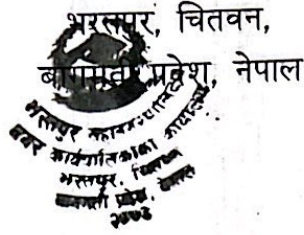 भरतपुर, चितवन,
बागमती प्रदेश, नेपाल
भरतपुर महानगरपालिका
नगर कार्यपालिकाको कार्यालय
भरतपुर, चितवन
बागमती प्रदेश, नेपाल
२०७३